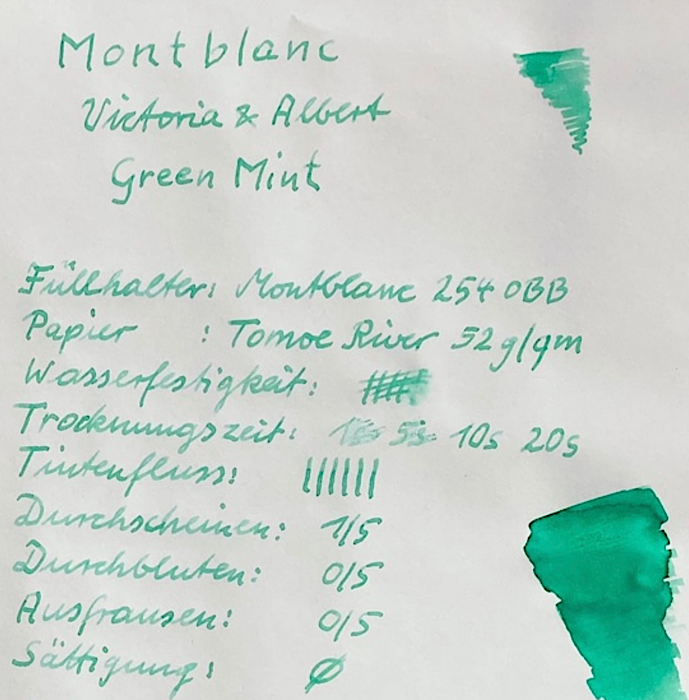 Montblanc
Victoria & Albert
Green Mint
Füllhalter: Montblanc 254 OBB
Papier : Tomoe River 52 g/qm
Wasserfestigkeit:
Trocknungszeit: 1s 5s 10s 20s
Tintenfluss: ||||||
Durchscheinen: 1/5
Durchbluten: 0/5
Ausfransen: 0/5
Sättigung: Ø